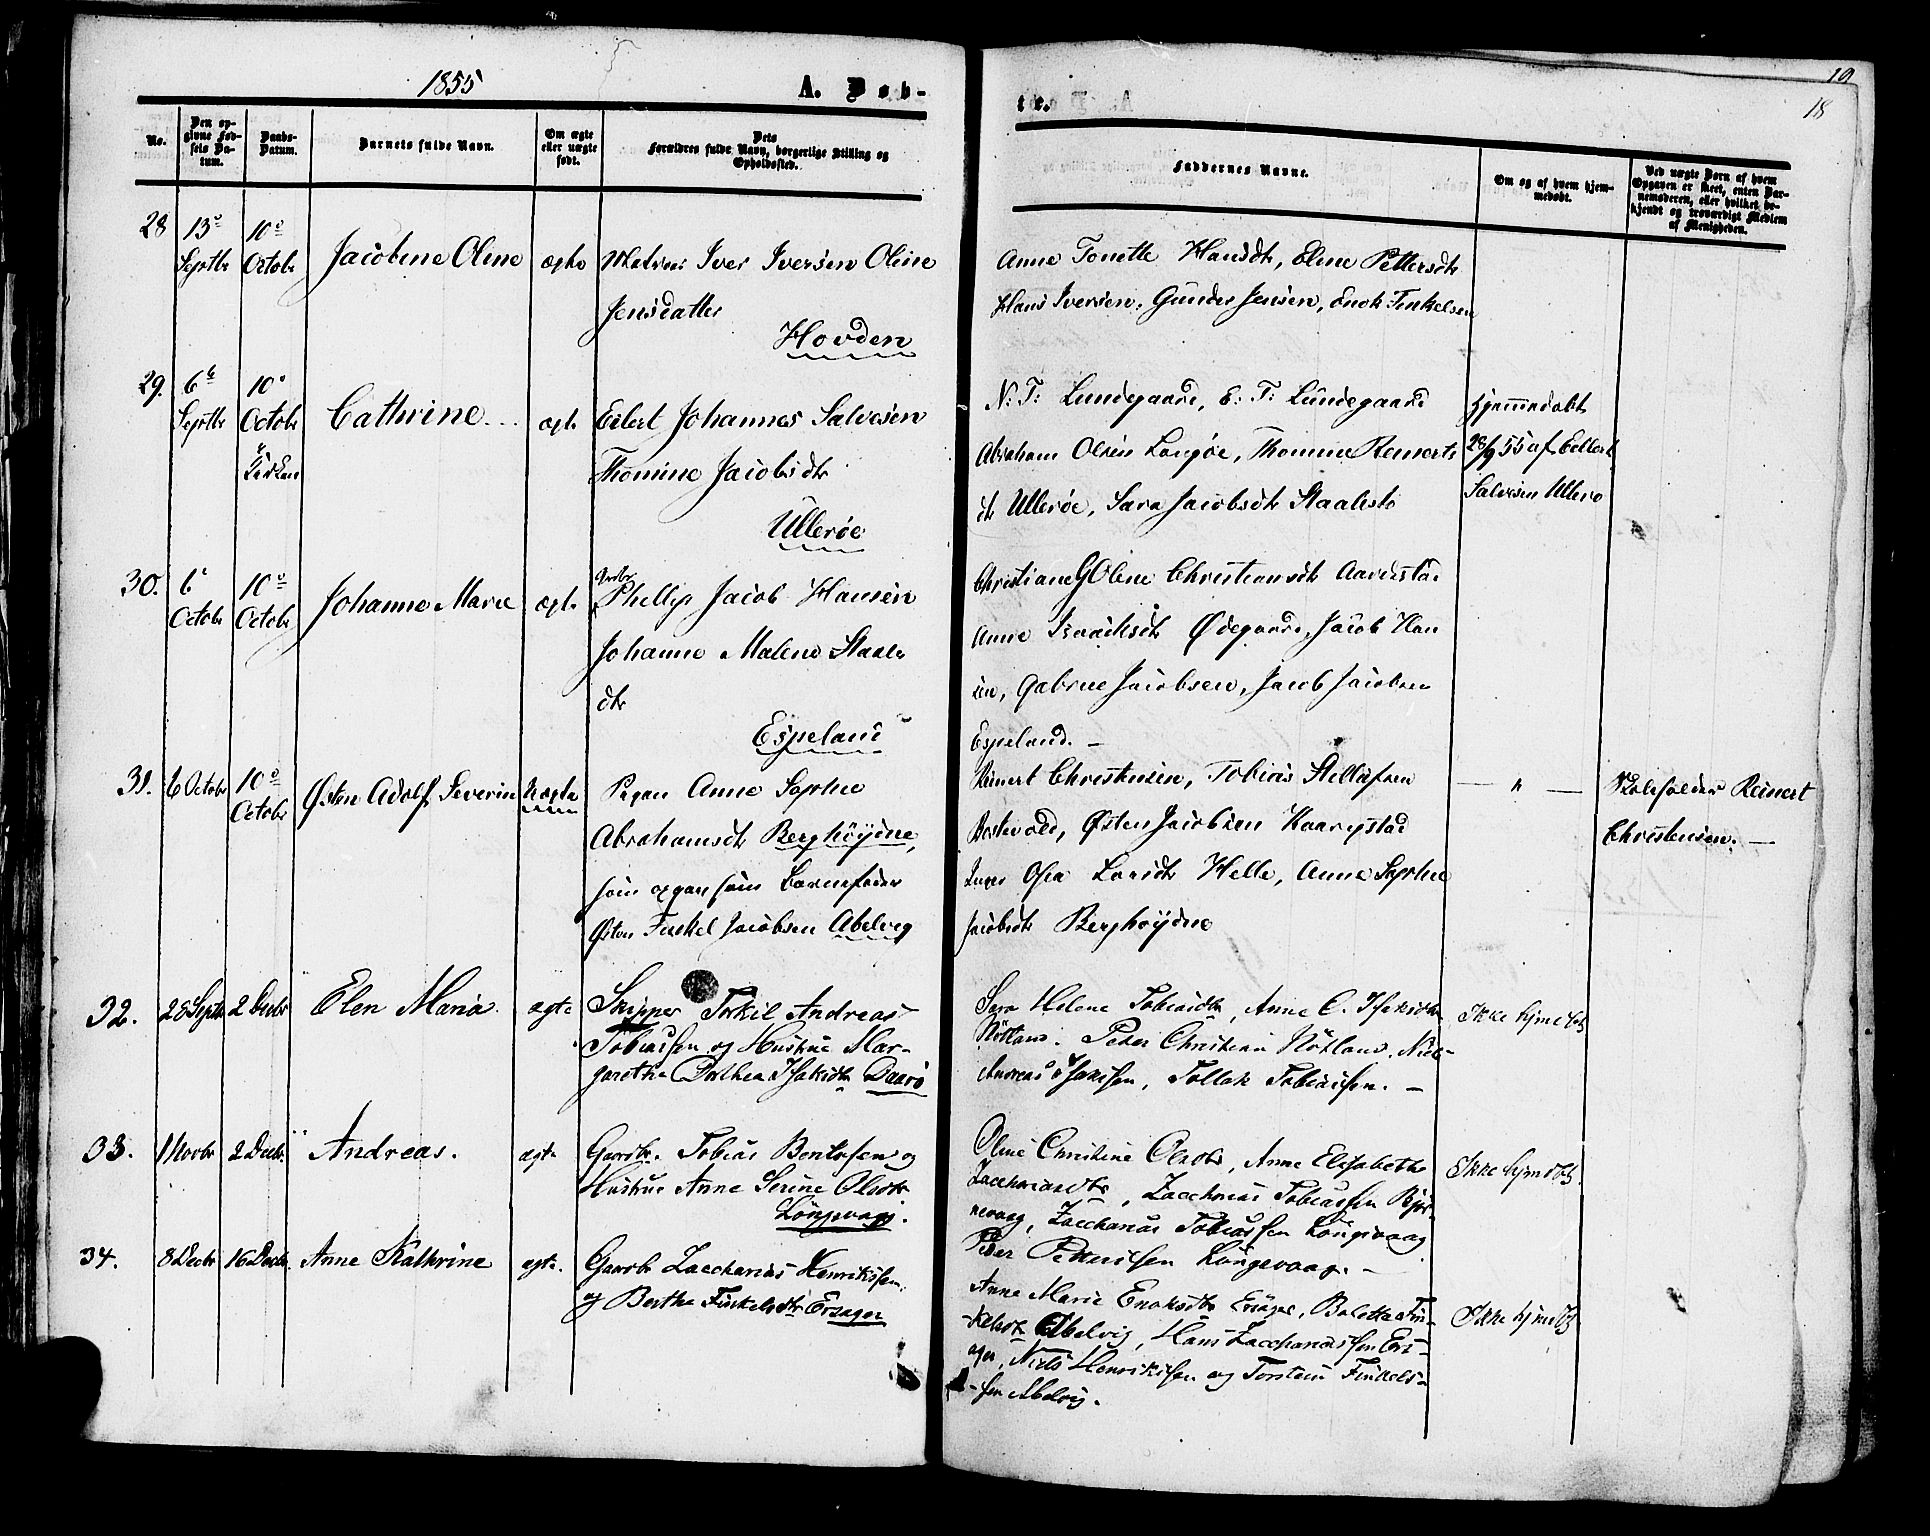 1855
A. Døb-
te.
19
18
No.
Den op-
givne Fød-
sels Da-
tum.
Daabs-
Datum.
Barnets fulde Navn.
Om ægte
eller uægte
født.
Dets
Forældres fulde Navn, borgerlige Stilling og
Opholdssted.
Faddernes Navne.
Om og af hvem hjem-
medøbt.
Ved uægte Børn af hvem
Opgaven er skeet, enten Bar-
nemoderen, eller hvilket be-
kjendt og troværdigt Medlem
af Menigheden.
28 13de
Septbr
10de
Octobr
Jacobine Oline
ægte
Matros Iver Iversen Oline
Jensdatter
Hovden
Anne Tonette Hansdtr, Eline Pettersdtr
Hans Iversen, Gunder Jensen, Enok Finkelsen
29. 6te
Septbr
10de
Octobr
i
Kirken
Cathrine
ægte
Eilert Johannes Salvesen
Thomine Jacobsdtr
Ullerøe
N: T: Lundegaard, E: T: Lundegaard
Abraham Olsen Langøe, Thomine Reinerts
dtr Ullerøe, Sara Jacobsdtr
Hjemmedøbt
28/9 55 af Eilert
Salvesen Ullerø
30. 6te
Octobr
10de
Octobr
Johanne Marie
ægte
Grdbr
Phillip Jacob Hansen
Johanne Malene Staale
dtr
Espeland
Christiane G Oline Christiansdtr Aardistad
Anne Isaachsdtr Ødegaard, Jacob Han
sen, Gabriel Jacobsen, Jacob Jacobsen
Espeland. —
31. 6 Octobr
10de
Octobr
Østen Adolf Severin
Uægte
Pigen Anne Sophie
Abrahamsdtr Berghøjdne,
som opgav som Barnefader
Østen Finkel Jacobsen Abelvig
Reinert Christensen, Tobias
Østen Jacobsen
Larsdtr Helle, Anne Sophie
Jacobsdtr Berghøjdne
— " —
Skoleholder Reinert
Christensen. —
32. 28 Septbr 2 Decbr Elen Maria. ægte
Skipper Torkil Andreas
Tobiassen og Hustrue Mar-
garethe Dorthea Isaksdtr Daarø
Sara Helene Tobiasdtr, Anne C. Isaksdtr
Nøtland. Peter Christian Nøtland. Niels
Andreas Isaksen, Tollak Tobiassen. —
Ikke hjmdbt
33. 1 Novbr 2 Decbr. Andreas. ægte
Gaardbr. Tobias Bentsen og
Hustrue Anne Serine Olsdtr
Longevaag.
Oline Christine Olsdtr, Anne Elisabeth
Zacchariasdtr, Zacharias Tobiassen Bjør-
nevaag, Zaccharias Tobiassen Longevaag
Peder Pettersen Longevaag. —
Ikke hjmdbt.
34. 8 Decbr 16 Decbr. Anne Kathrine ægte.
Gaardbr Zaccharias Henriksen
og Berthe Finkelsdtr Ersager
Anne Marie Enoksdtr Ersager, Boletta Fin-
kelsdtr Abelvig, Hans Zacchariassen Ers-
ager, Niels Henriksen og Torstein Finkels-
sen Abelvig.
Ikke hjmdbt